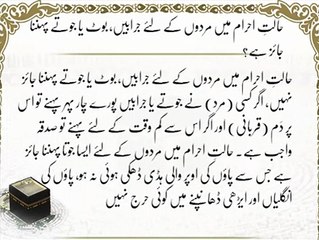 حالتِ احرام میں مردوں کے لئے جرابیں، بوٹ یا جوتے پہننا
جائز ہے؟
حالتِ احرام میں مردوں کے لئے جرابیں، بوٹ یا جوتے پہننا جائز
نہیں، اگر کسی (مرد) نے جوتے یا جرابیں پورے چار پہر پہنے تو اس
پر دَم (قربانی) اور اگر اس سے کم وقت کے لئے پہنے تو صدقہ
واجب ہے۔ حالتِ احرام میں مردوں کے لئے ایسا جوتا پہننا جائز
ہے جس سے پاؤں کی اوپر والی ہڈی ڈھکی ہوئی نہ ہو، پاؤں کی
انگلیاں اور ایڑھی ڈھانپنے میں کوئی حرج نہیں